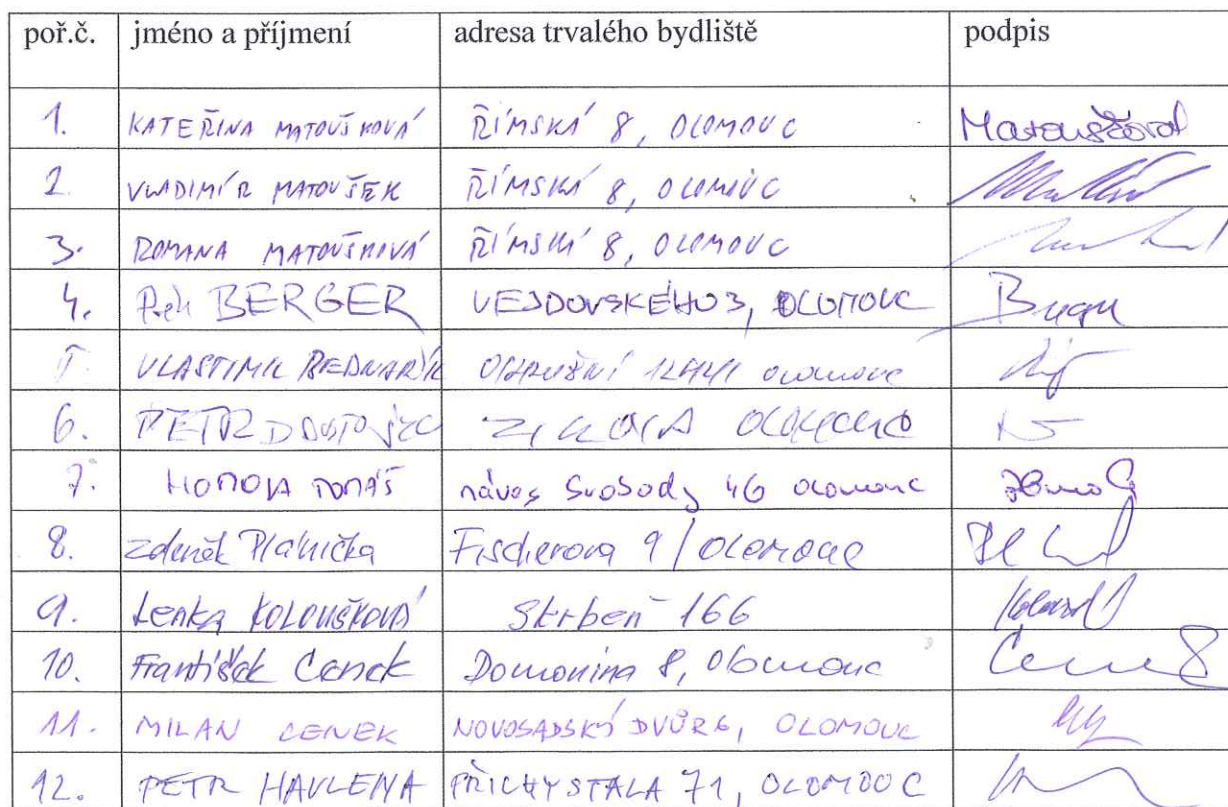 poř.č. jméno a příjmení adresa trvalého bydliště podpis
1. KATEŘINA MATOUŠKOVÁ ŘÍMSKÁ 8, OLOMOUC Matoušková
2. VLADIMÍR MATOUŠEK ŘÍMSKÁ 8, OLOMOUC
3. ROMANA MATOUŠKOVÁ ŘÍMSKÁ 8, OLOMOUC
4. Petr BERGER VEJDOVSKÉHO 3, OLOMOUC
5. VLASTIMIL BEDNAŘÍK OKRUŽNÍ OLOMOUC
6. PETR ZIKOVA OLOMOUC
7. HOMOLA TOMÁŠ náves Svobody 46 OLOMOUC
8. Zdeněk Plánička Fischerova 9 / OLOMOUC
9. Lenka KOLOUŠKOVÁ Skrbeň 166
10. František Cenek Domovina 8, Olomouc
11. MILAN CENEK NOVOSADSKÝ DVŮR 6, OLOMOUC
12. PETR HAVLENA PŘICHYSTALA 71, OLOMOUC